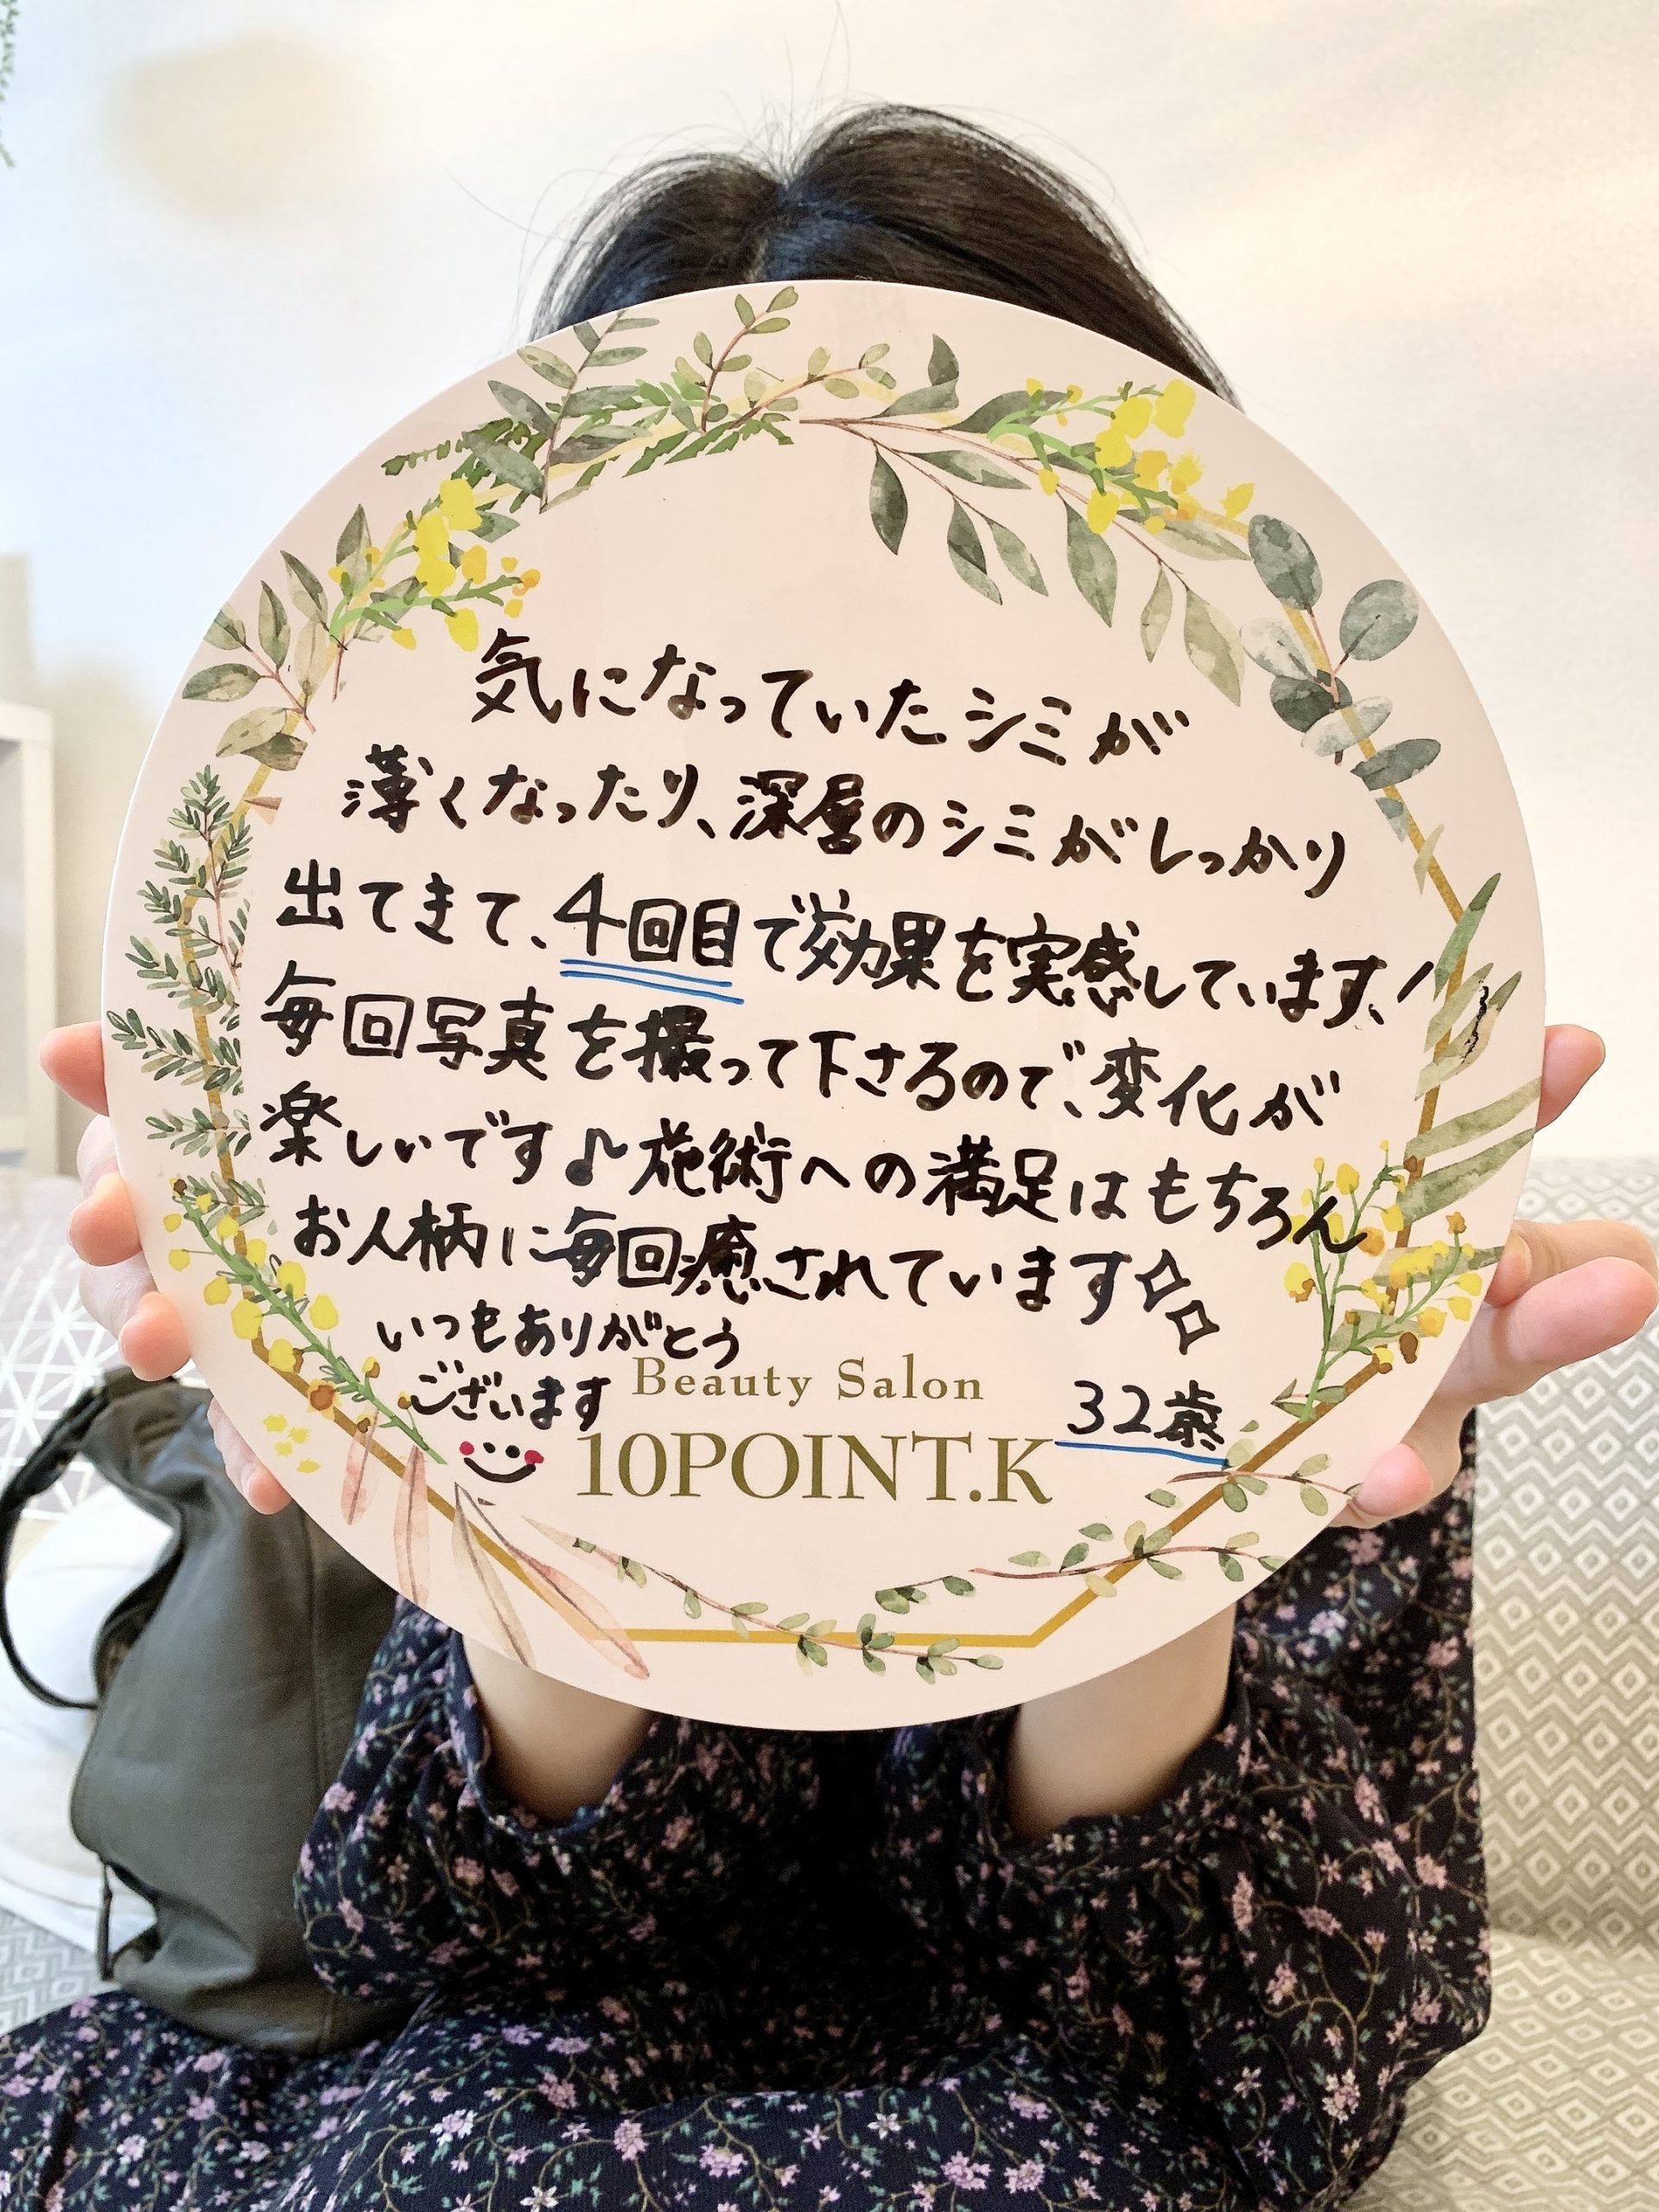 気になっていたシミが
薄くなったり、深層のシミがしっかり
出てきて、4回目で効果を実感しています!
毎回写真を撮って下さるので、変化が
楽しいです♪施術への満足はもちろん
お人柄に毎回癒されています✧✧
いつもありがとう
ございます
Beauty Salon
32歳
10POINT.K